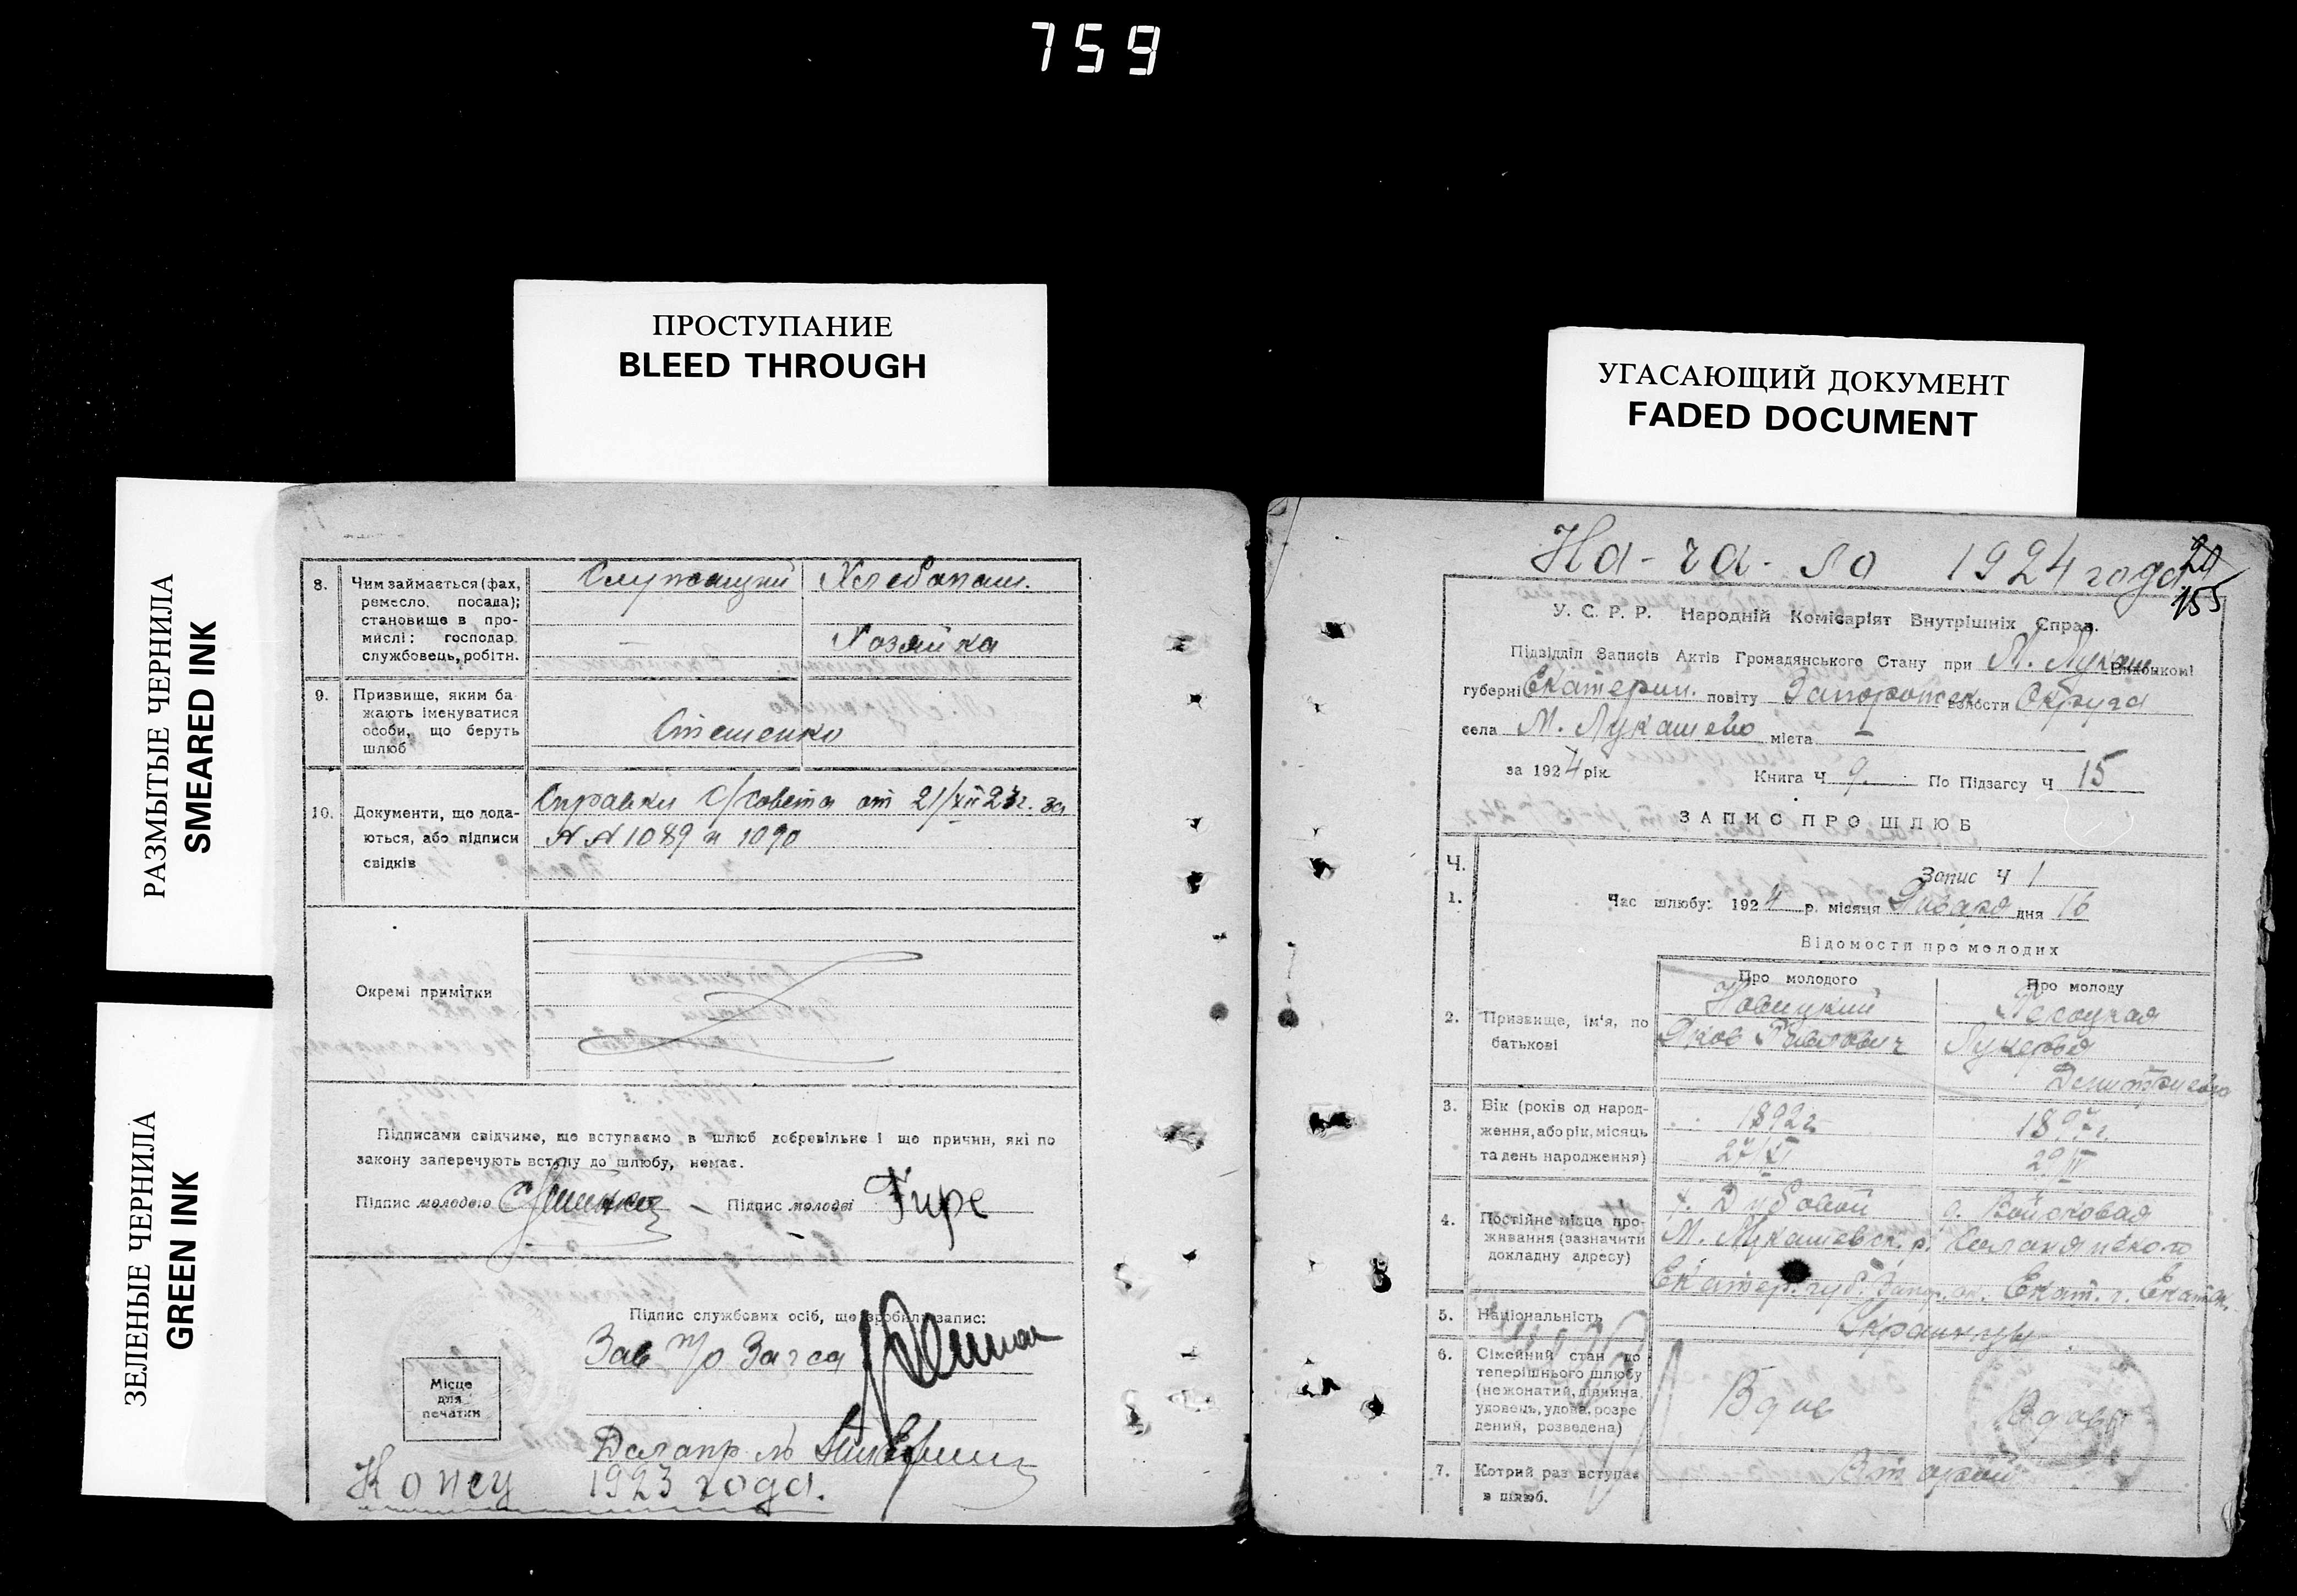 759
ПРОСТУПАНИЕ
BLEED THROUGH
УГАСАЮЩИЙ ДОКУМЕНТ
FADED DOCUMENT
РАЗМЫТЫЕ ЧЕРНИЛА
SMEARED INK
ЗЕЛЕНЫЕ ЧЕРНИЛА
GREEN INK
8. Чим займається (фах, ремесло, посада); становище в промислі: господар, службовець, робітн.
Служащий Хлебопаш.
— Хозяйка
9. Призвище, яким бажають іменуватися особи, що беруть шлюб
Стешенко
10. Документи, що додаються, або підписи свідків
Справки С/совета от 21/XII 23г. за
N N 1089 и 1090
Окремі примітки
Підписами свідчимо, що вступаємо в шлюб добревільне і що причин, які по
закону заперечують вступу до шлюбу, немає.
Підпис молодого
Підпис молодої
Підпис службових осіб, що зробили запис:
Зав п/о Загса
Місце
для
печатки
Делопр ль
Концу 1923 года.
На-ча-ло 1924 года
20
155
У. С. Р. Р. Народній Комісаріят Внутрішніх Справ.
Підзідділ Записів Актів Громадянського Стану при М. Лукаш. Виконкомі
губерні Екатерин. повіту Запорожск волости Округа
села М. Лукашево міста —
за 1924 рік. Книга Ч 9. По Підзагсу Ч 15
ЗАПИС ПРО ШЛЮБ
Ч.
Запис Ч 1
1. Час шлюбу: 1924 р. місяця Января дня 16
Відомости про молодих
Про молодого Про молоду
2. Призвище, ім'я, по батькові
Новицкий
Яков Павлович Лукерья
3. Вік (років од народження, або рік, місяць та день народження)
1892г. 1897г.
27/XI 29/IV
4. Постійне місце проживання (зазначити докладну адресу)
х. Дубовой д. Войсковая
М. Лукашевск. р.
Екатер. губ. Запор. ок. Екат. г. Екатер.
5. Національність
Украинцы
6. Сімейний стан до теперішнього шлюбу (нежонатий, дівчина, удовець, удова, розведений, розведена)
Вдов Вдова
7. Котрий раз вступає в шлюб.
Вторый